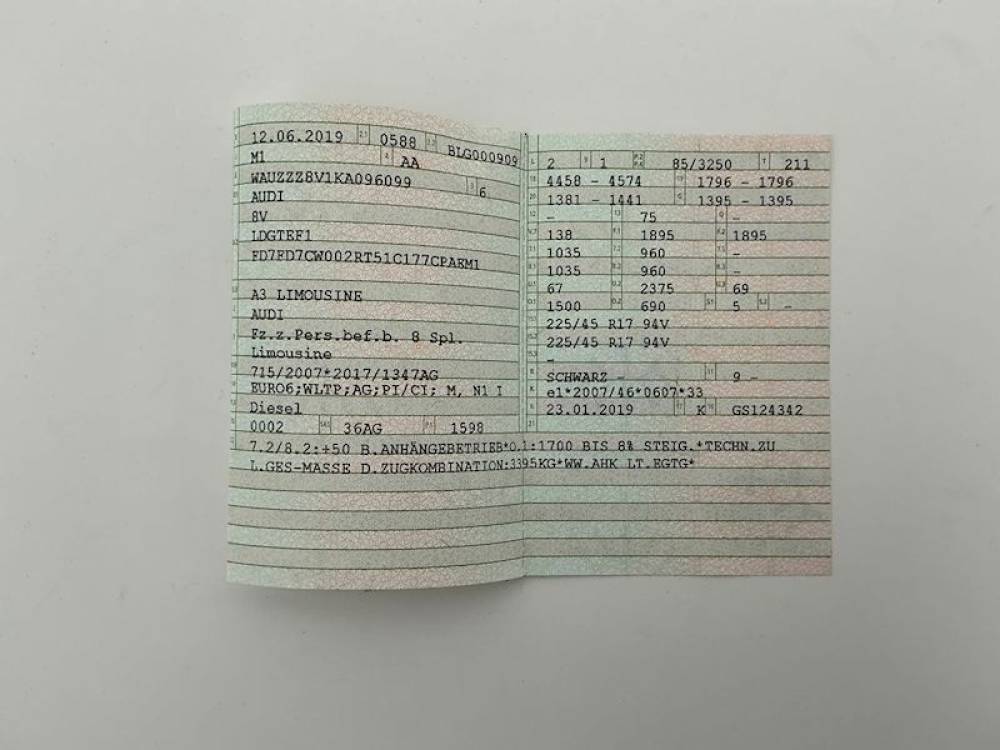 12.06.2019 2.1 0588 2.2 BLG000909
M1 4 AA
WAUZZZ8V1KA096099 3 6
AUDI
8V
LDGTEF1
FD7FD7CW002RT51C177CPAEM1
A3 LIMOUSINE
AUDI
Fz.z.Pers.bef.b. 8 Spl.
Limousine
715/2007*2017/1347AG
EURO6;WLTP;AG;PI/CI; M, N1 I
Diesel
0002 14.1 36AG P.1 1598
L 2 9 1 P.2 P.4 85/3250 T 211
18 4458 - 4574 19 1796 - 1796
20 1381 - 1441 G 1395 - 1395
12 - 13 75 Q -
V.7 138 F.1 1895 F.2 1895
7.1 1035 7.2 960 7.3 -
8.1 1035 8.2 960 8.3 -
U.1 67 U.2 2375 U.3 69
O.1 1500 O.2 690 S.1 5 S.2 -
15.1 225/45 R17 94V
15.2 225/45 R17 94V
15.3 -
R SCHWARZ - 11 9 -
K e1*2007/46*0607*33
6 23.01.2019 17 K 16 GS124342
21
22 7.2/8.2:+50 B.ANHÄNGEBETRIEB*O.1:1700 BIS 8% STEIG.*TECHN.ZU
L.GES-MASSE D.ZUGKOMBINATION:3395KG*WW.AHK LT.EGTG*